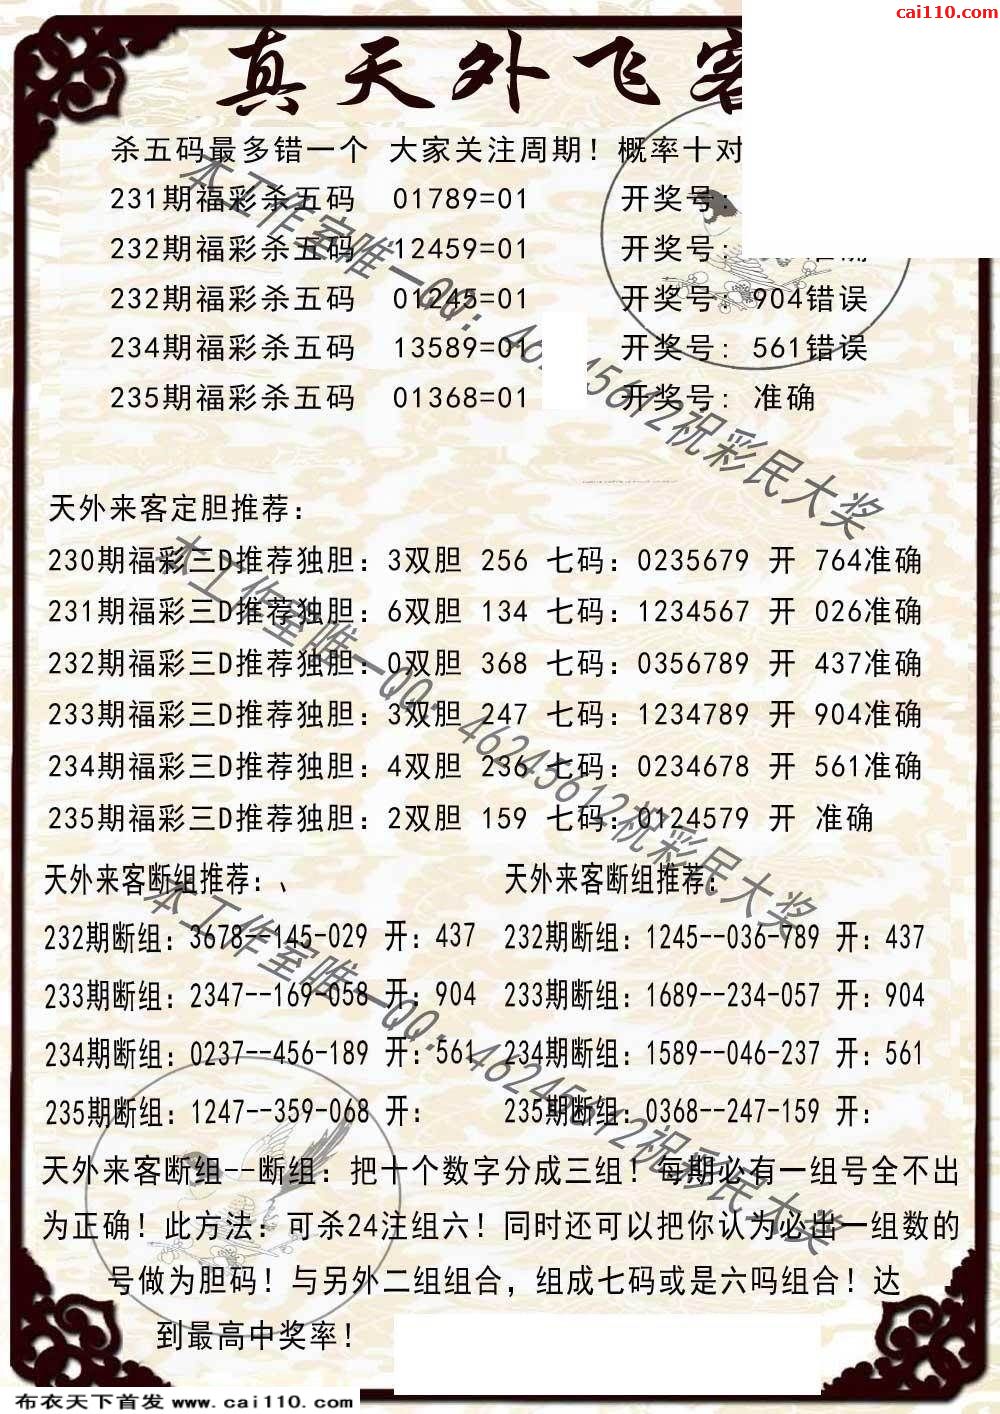 cai110.com
真天外飞客
杀五码最多错一个 大家关注周期！概率十对
231期福彩杀五码 01789=01 开奖号:
232期福彩杀五码 12459=01 开奖号:
232期福彩杀五码 01245=01 开奖号: 904错误
234期福彩杀五码 13589=01 开奖号: 561错误
235期福彩杀五码 01368=01 开奖号: 准确
天外来客定胆推荐:
230期福彩三D推荐独胆: 3双胆 256 七码: 0235679 开 764准确
231期福彩三D推荐独胆: 6双胆 134 七码: 1234567 开 026准确
232期福彩三D推荐独胆: 0双胆 368 七码: 0356789 开 437准确
233期福彩三D推荐独胆: 3双胆 247 七码: 1234789 开 904准确
234期福彩三D推荐独胆: 4双胆 236 七码: 0234678 开 561准确
235期福彩三D推荐独胆: 2双胆 159 七码: 0124579 开 准确
天外来客断组推荐:、 天外来客断组推荐:
232期断组: 3678--145-029 开: 437 232期断组: 1245--036-789 开: 437
233期断组: 2347--169-058 开: 904 233期断组: 1689--234-057 开: 904
234期断组: 0237--456-189 开: 561 234期断组: 1589--046-237 开: 561
235期断组: 1247--359-068 开: 235期断组: 0368--247-159 开:
天外来客断组--断组: 把十个数字分成三组！每期必有一组号全不出
为正确！此方法: 可杀24注组六！同时还可以把你认为必出一组数的
号做为胆码！与另外二组组合，组成七码或是六吗组合！达
到最高中奖率！
本工作室唯一QQ: 46245612祝彩民大奖
本工作室唯一QQ: 46245612祝彩民大奖
本工作室唯一QQ: 46245612祝彩民大奖
布衣天下首发 www.cai110.com